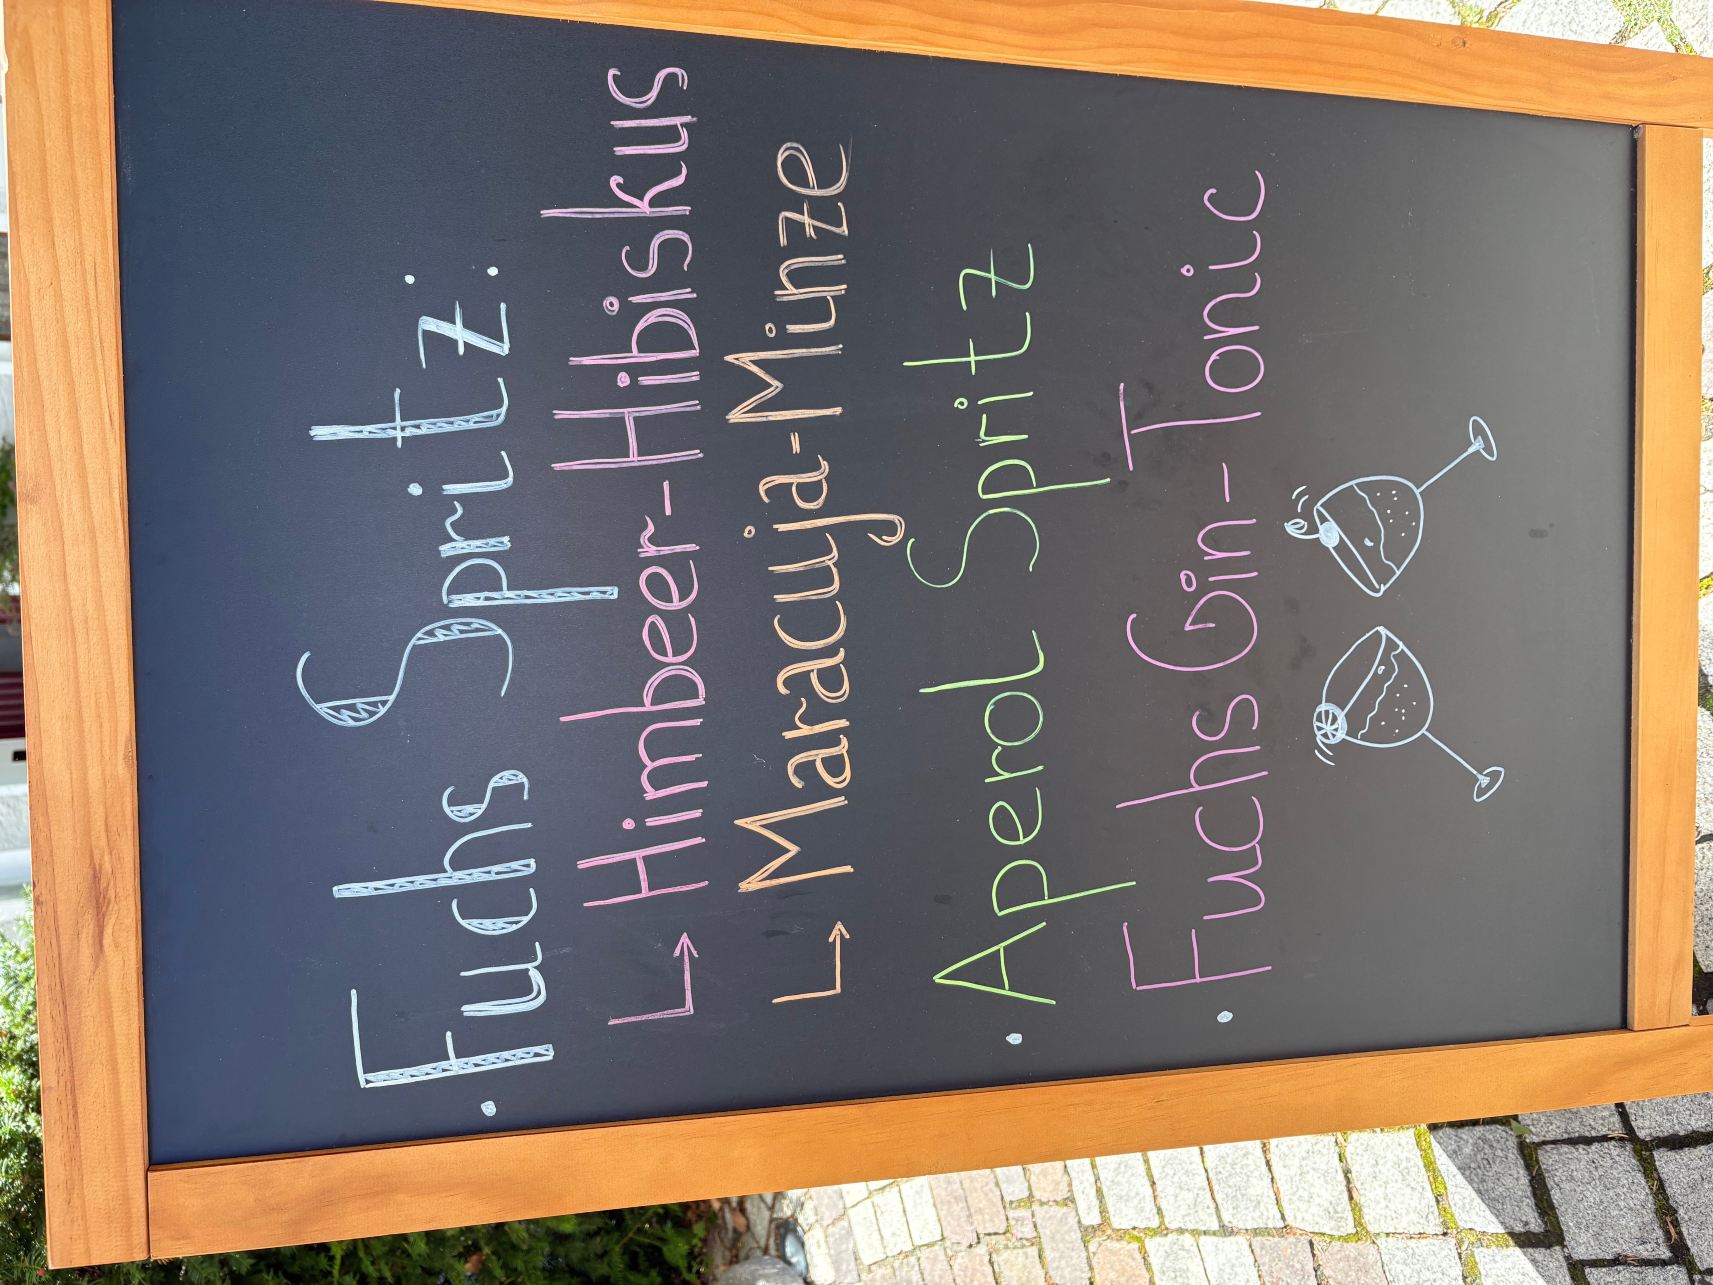 • Fuchs Spritz:
↳ Himbeer-Hibiskus
↳ Maracuja-Minze
• Aperol Spritz
• Fuchs Gin-Tonic